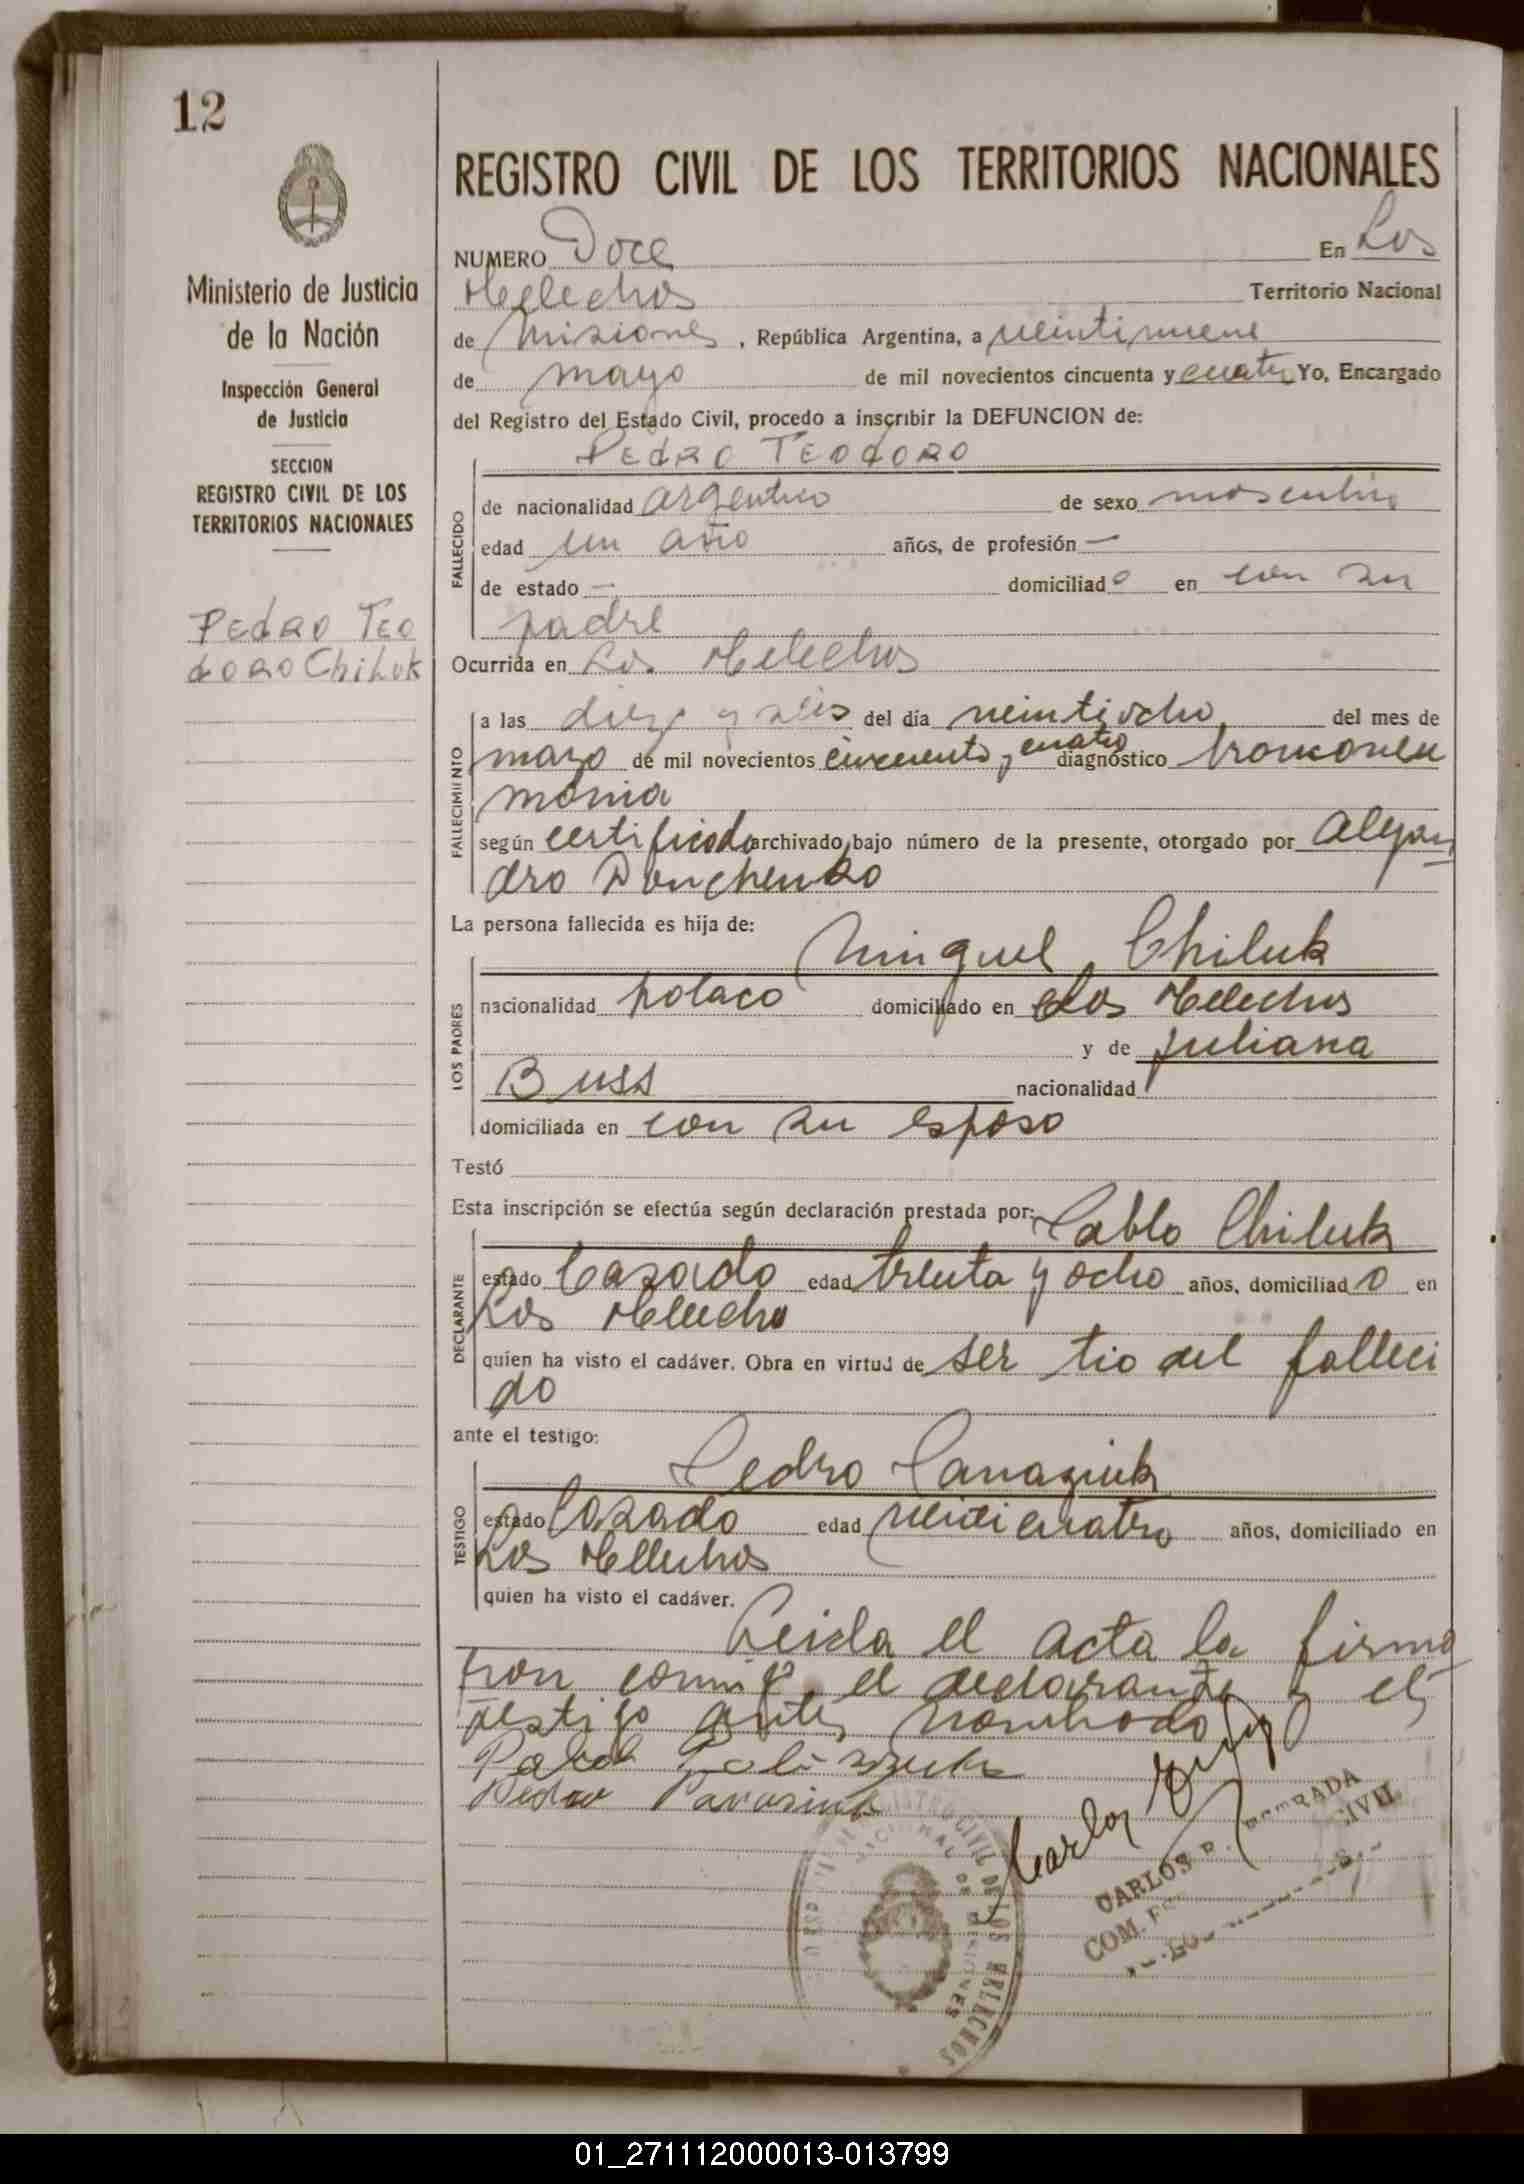 12
Ministerio de Justicia
de la Nación
Inspección General
de Justicia
SECCION
REGISTRO CIVIL DE LOS
TERRITORIOS NACIONALES
Pedro Teo
doro Chiluk
REGISTRO CIVIL DE LOS TERRITORIOS NACIONALES
NUMERO Doce En Los
Helechos Territorio Nacional
de Misiones, República Argentina, a veintinueve
de mayo de mil novecientos cincuenta y cuatro Yo, Encargado
del Registro del Estado Civil, procedo a inscribir la DEFUNCION de:
Pedro Teodoro
FALLECIDO
de nacionalidad argentino de sexo masculino
edad un año años, de profesión —
de estado — domiciliado en con su
padre
Ocurrida en Los Helechos
FALLECIMIENTO
a las diez y seis del día veintiocho del mes de
mayo de mil novecientos cincuenta y cuatro diagnóstico bronconeu
monia
según certificado archivado bajo número de la presente, otorgado por Alejan
dro Donchenko
La persona fallecida es hija de:
Minguel Chiluk
LOS PADRES
nacionalidad polaco domiciliado en Los Helechos
y de Juliana
Buss nacionalidad
domiciliada en con su esposo
Testó
Esta inscripción se efectúa según declaración prestada por: Pablo Chiluk
DECLARANTE
estado Casado edad treinta y ocho años, domiciliado en
Los Helecho
quien ha visto el cadáver. Obra en virtud de ser tio del falleci
do
ante el testigo:
Pedro Panasiuk
TESTIGO
estado Casado edad veinticuatro años, domiciliado en
Los Helechos
quien ha visto el cadáver.
Leida el acta la firma
ron conmigo el declarante y el
testigo antes nombrado
Pedro Panasiuk
Carlos
CARLOS
REGISTRO CIVIL DE LOS HELECHOS
01_271112000013-013799